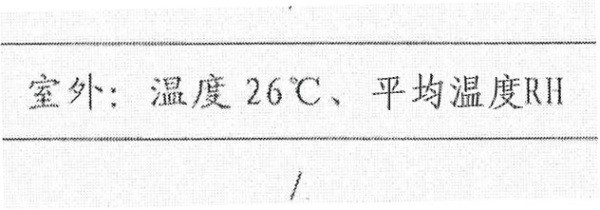 室外：温度 26℃、平均温度RH
/